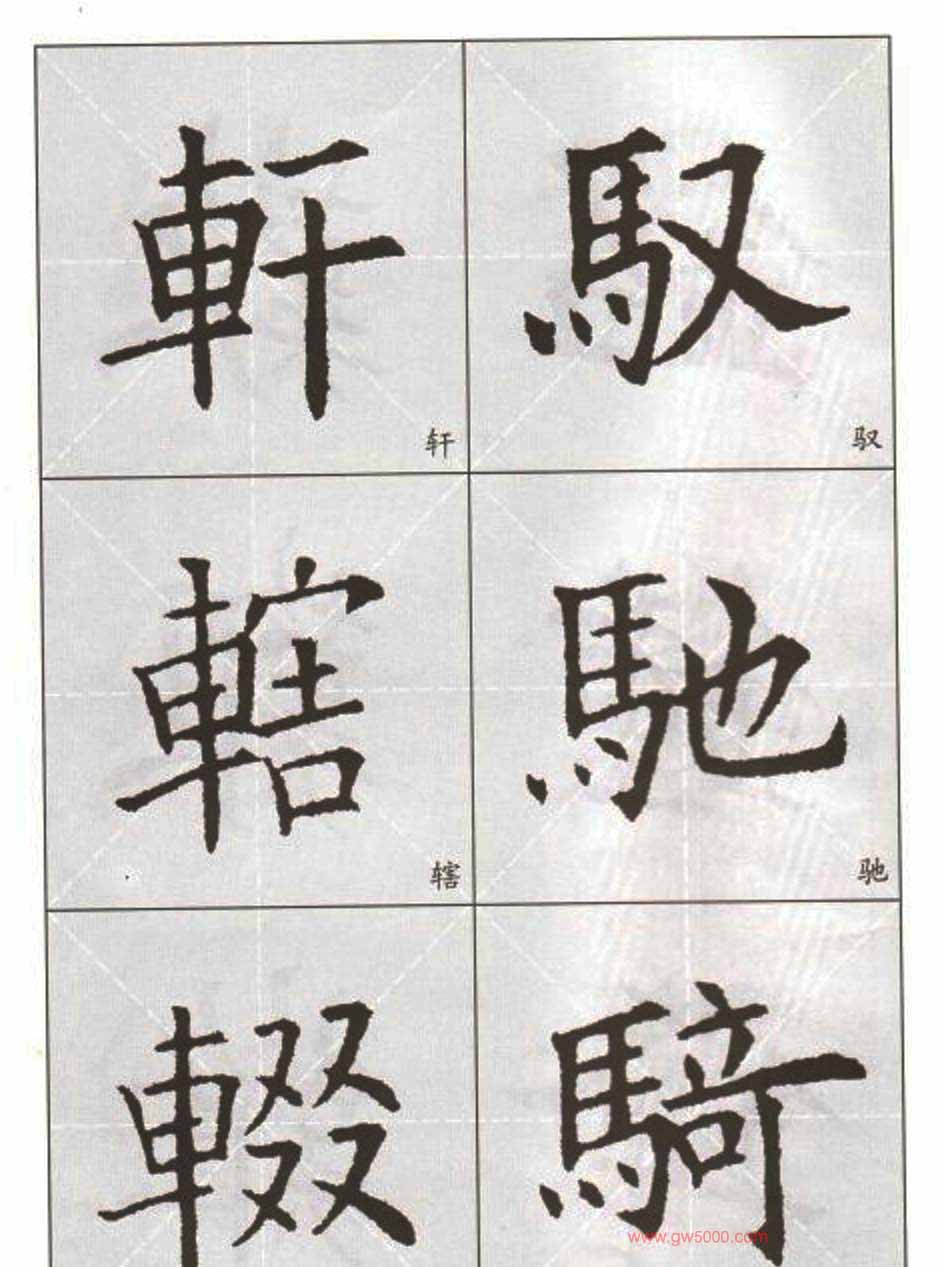 軒 馭
轩 驭
轄 馳
辖 驰
輟 騎
www.gw5000.com